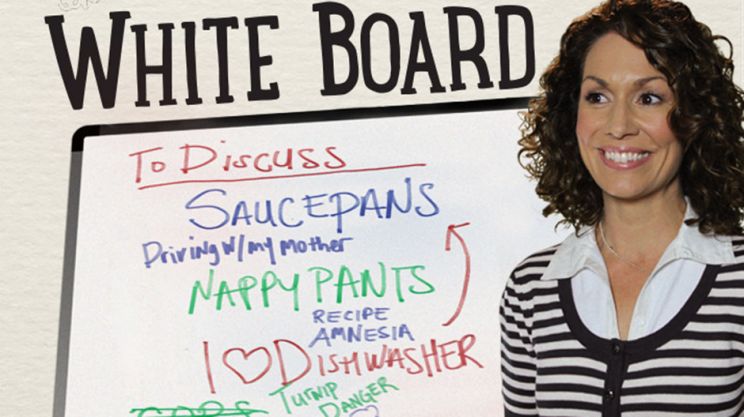 WHITE BOARD
TO DISCUSS
SAUCEPANS
Driving w/ my mother
NAPPY PANTS
RECIPE
AMNESIA
I ♡ DISHWASHER
TURNIP
DANGER